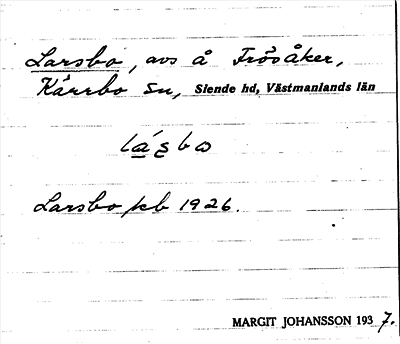 Larsbo, avs å Frösåker,
Kärrbo sn, Siende hd, Västmanlands län
la´s̠bo
Larsbo kb 1926.
MARGIT JOHANSSON 1937.